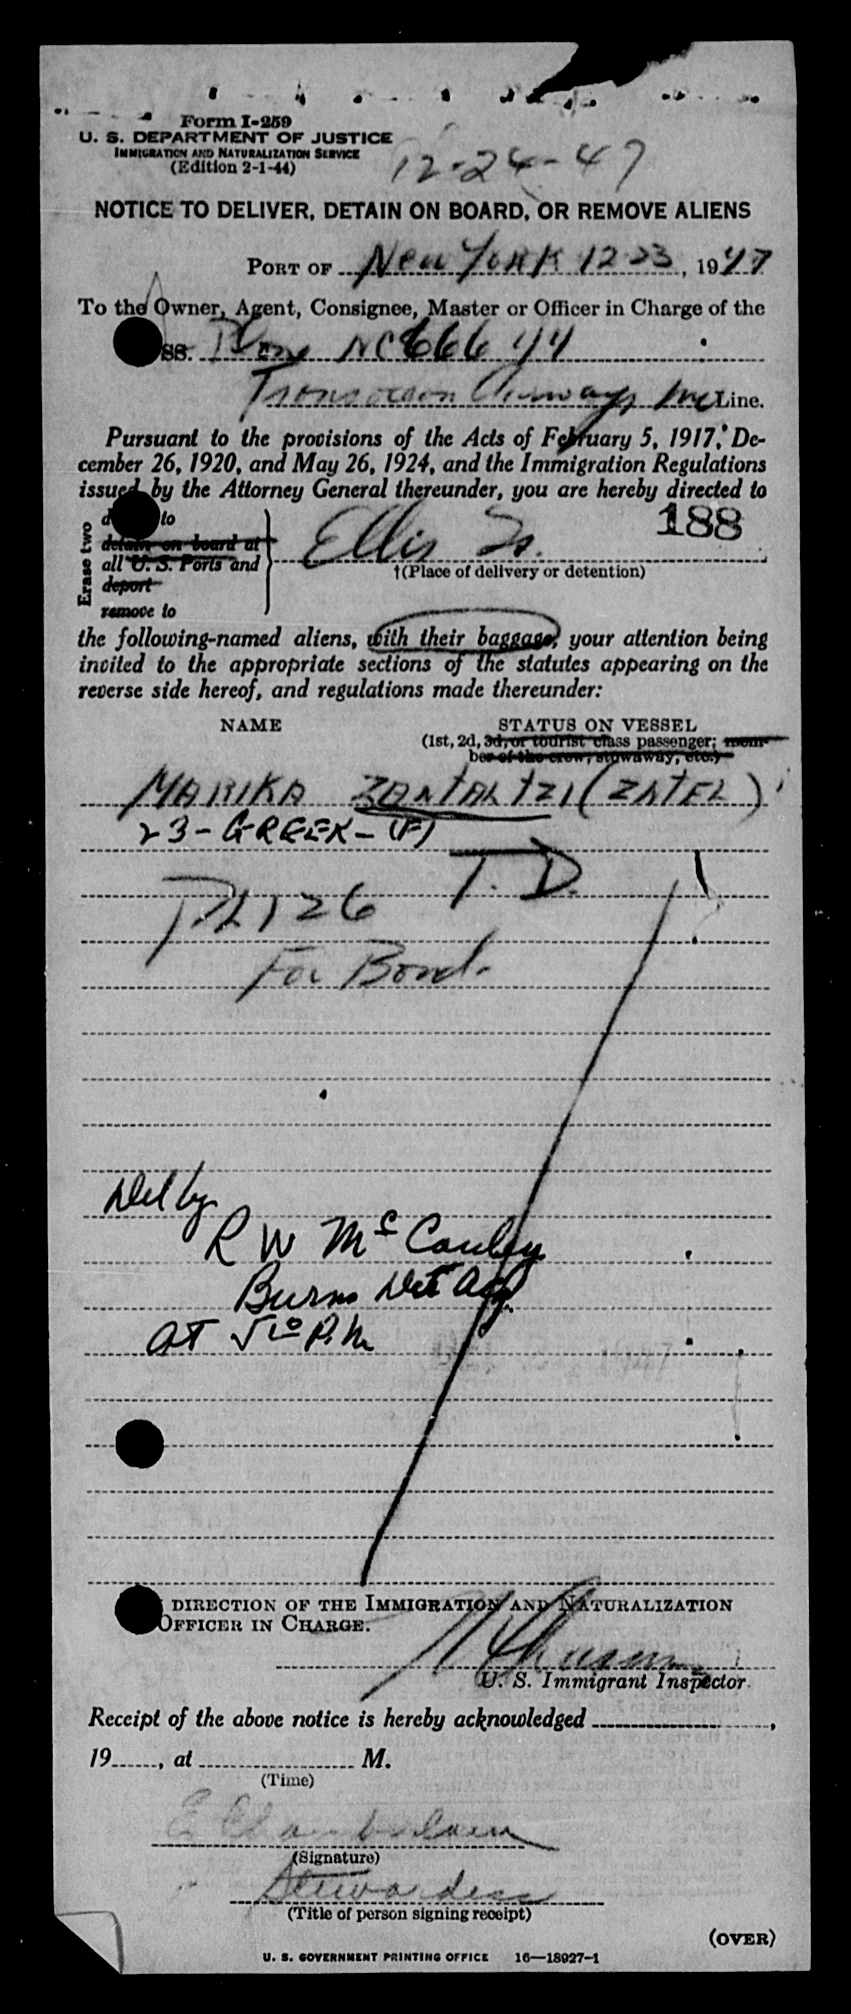 Form I-259
U. S. DEPARTMENT OF JUSTICE
IMMIGRATION AND NATURALIZATION SERVICE
(Edition 2-1-44)
12-24-47
NOTICE TO DELIVER, DETAIN ON BOARD, OR REMOVE ALIENS
PORT OF New York 12 23, 1947
To the Owner, Agent, Consignee, Master or Officer in Charge of the
SS. Plane NC 66644
Transocean Airways Inc Line.
Pursuant to the provisions of the Acts of February 5, 1917, De-
cember 26, 1920, and May 26, 1924, and the Immigration Regulations
issued by the Attorney General thereunder, you are hereby directed to
Erase two
to
detain on board at
all U. S. Ports and
deport
remove to
Ellis Is.
188
†(Place of delivery or detention)
the following-named aliens, with their baggage, your attention being
invited to the appropriate sections of the statutes appearing on the
reverse side hereof, and regulations made thereunder:
NAME STATUS ON VESSEL
(1st, 2d, 3d, or tourist class passenger; mem-
ber of the crew, stowaway, etc.)
MARIKA ZANTALTZI (ZATEL)
23-GREEK-(F)
T. D.
For Bond.
Del by
R W McCauley
Burns Det Agy.
AT 5 10 P.M.
DIRECTION OF THE IMMIGRATION AND NATURALIZATION
OFFICER IN CHARGE.
U. S. Immigrant Inspector.
Receipt of the above notice is hereby acknowledged ,
19 , at M.
(Time)
E Chamberlain
(Signature)
Stewardess
(Title of person signing receipt)
(OVER)
U. S. GOVERNMENT PRINTING OFFICE 16—18927-1